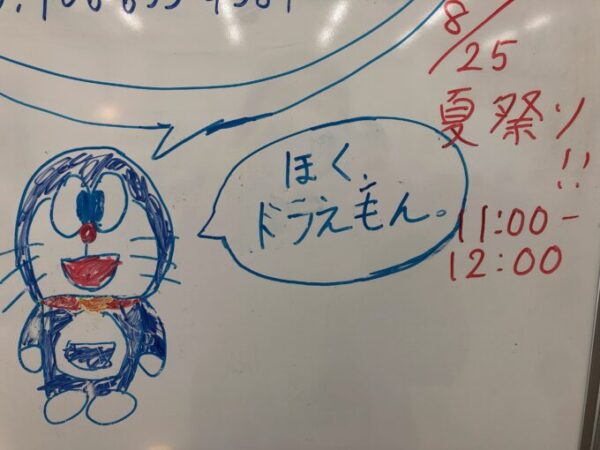 8/25
夏祭り
!!
11:00-
12:00
ほく、
ドラえもん。